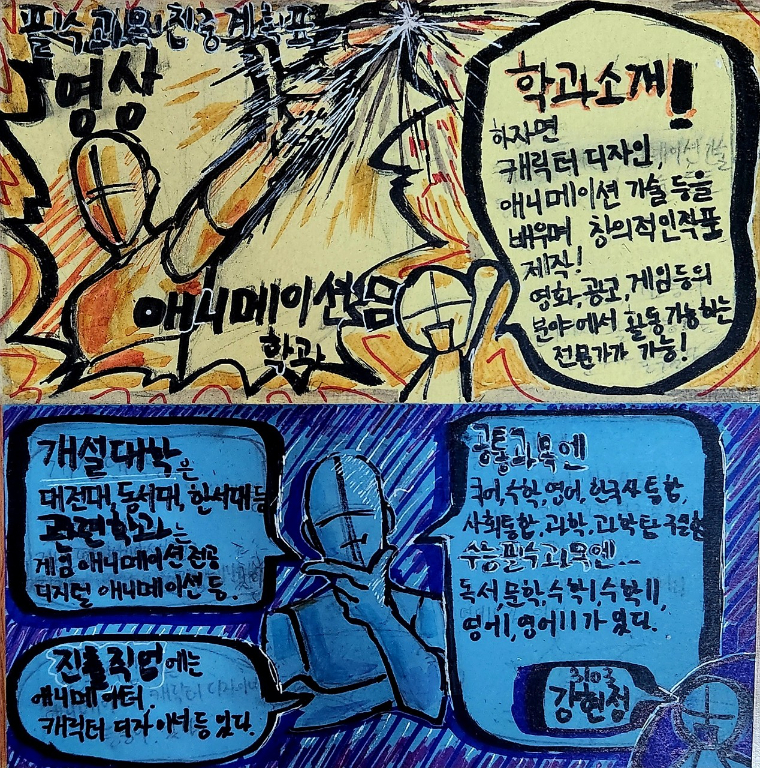 필수과목집중계획표
영상
애니메이션
학과
학과소개!
하자면
캐릭터 디자인,
애니메이션 기술 등을
배우며 창의적인작품
제작!
영화, 광고, 게임등의
분야에서 활동가능하는
전문가가 가능!
개설대학은
대전대, 동서대, 한서대등
관련학과는
게임 애니메이션 전공
디지털 애니메이션 등.
진출직업에는
애니메이터,
캐릭터 디자이너등 있다.
공통과목엔
국어, 수학, 영어, 한국사, 통합,
사회통합, 과학, 과학탐구실험
수능필수과목엔...
독서, 문학, 수학I, 수학II,
영어I, 영어II가 있다.
3103
강현정